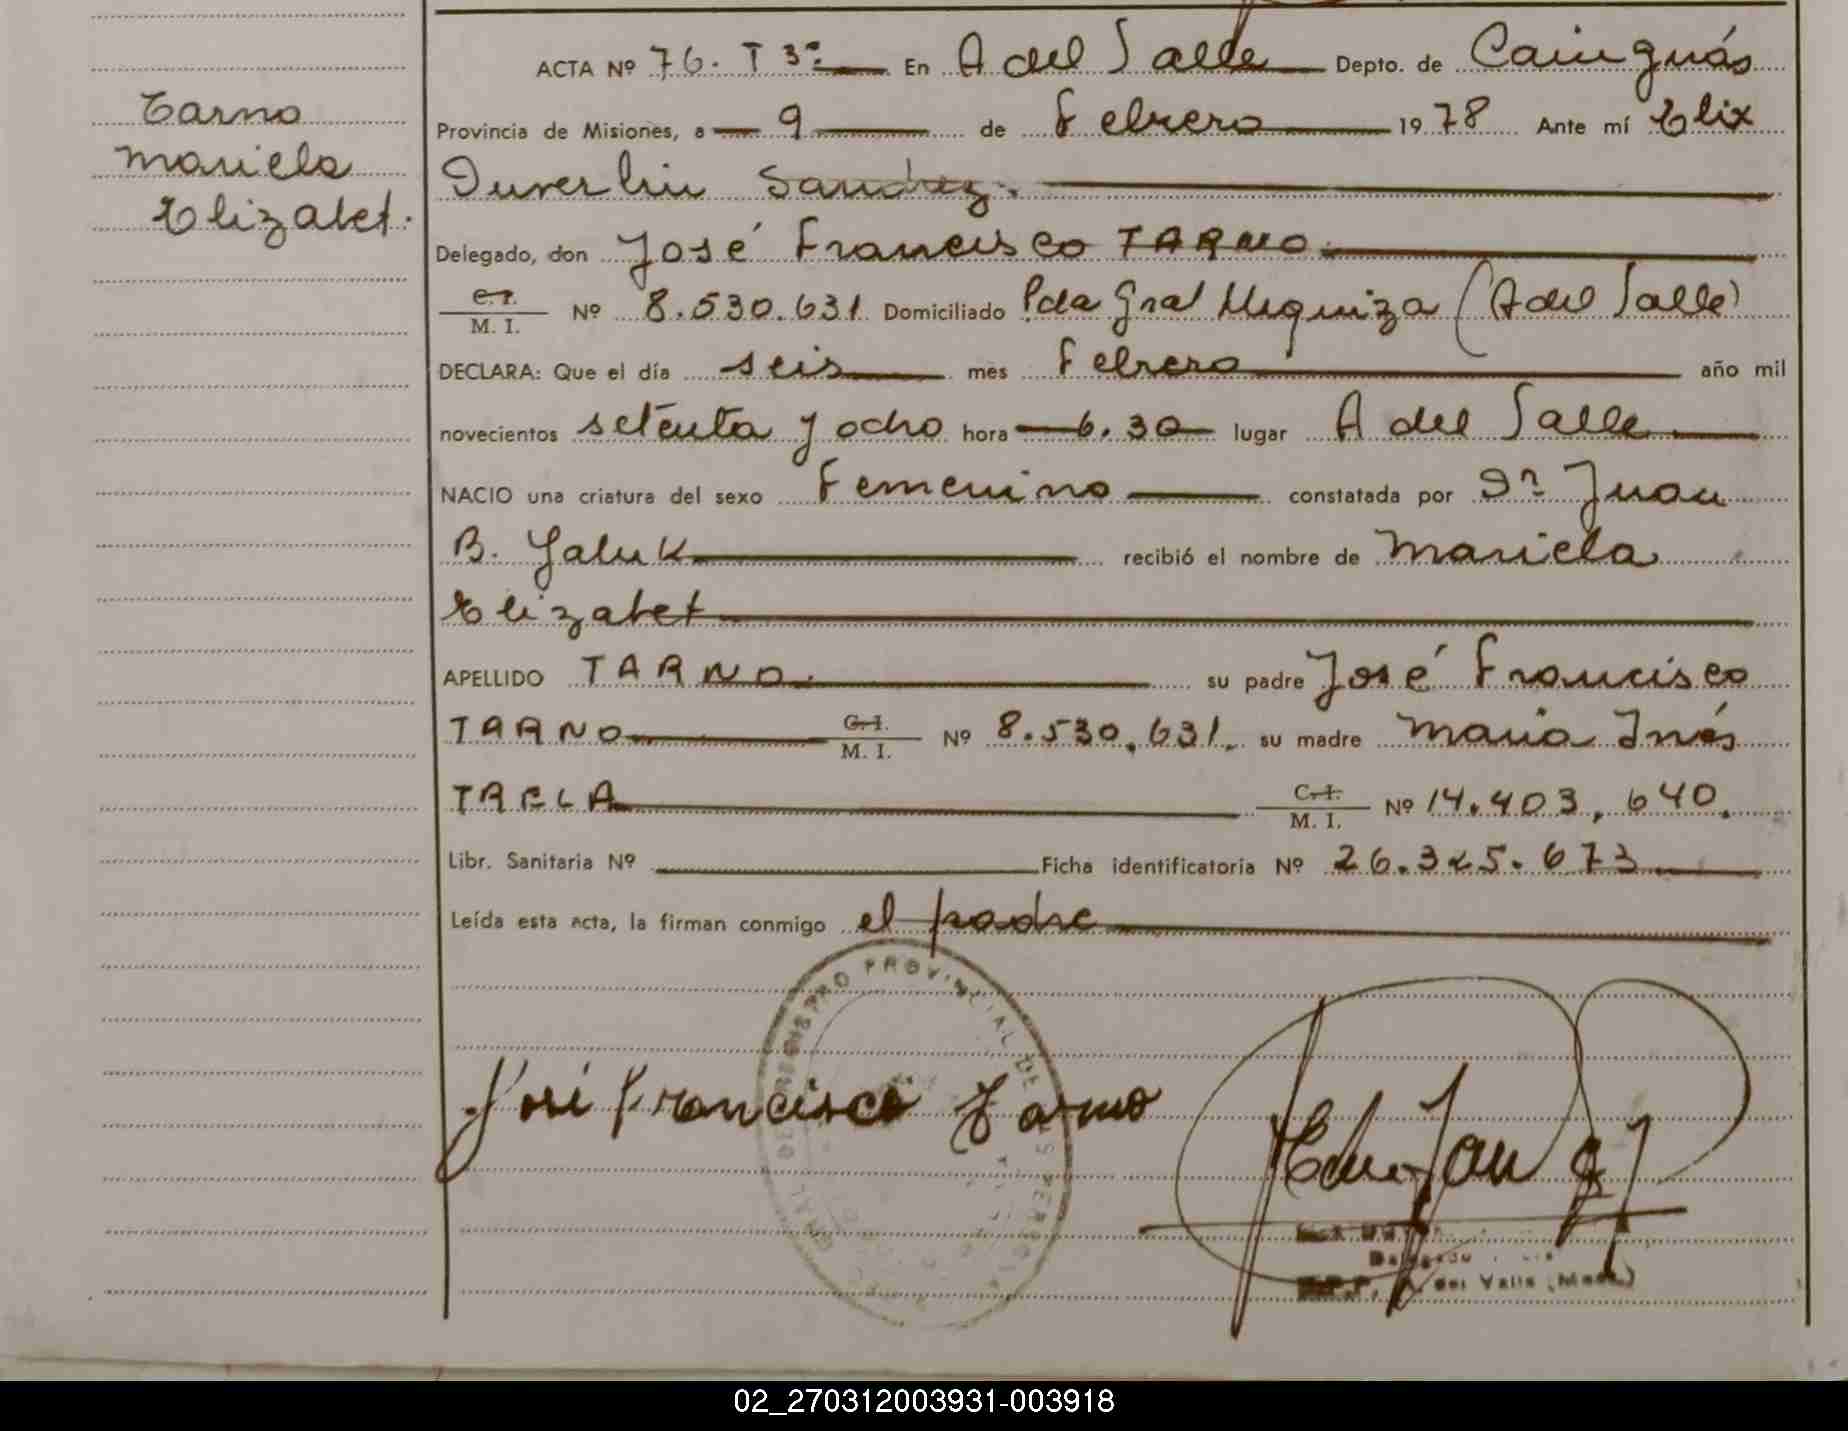 ACTA Nº 76. T 3º En A del Valle Depto. de Cainguás
Provincia de Misiones, a 9 de Febrero 1978 Ante mí Elix
Duverlin Sandrez.
Delegado, don José Francisco TARNO
C. I. M. I. Nº 8.530.631 Domiciliado Pda Gral Urquiza (A del Valle)
DECLARA: Que el día seis mes Febrero año mil
novecientos setenta y ocho hora 6.30 lugar A del Valle
NACIO una criatura del sexo Femenino constatada por Dr Juan
B. Yaluk recibió el nombre de Mariela
Elizabet
APELLIDO TARNO su padre José Francisco
TARNO C. I. M. I. Nº 8.530.631. su madre Maria Inés
C. I. M. I. Nº 14.403.640.
Libr. Sanitaria Nº Ficha identificatoria Nº 26.325.673
Leída esta acta, la firman conmigo el padre
Tarno
Mariela
Elizabet.
José Francisco Tarno
REGISTRO PROVINCIAL DE LAS PERSONAS
Delegado
del Valle (Mnes.)
02_270312003931-003918